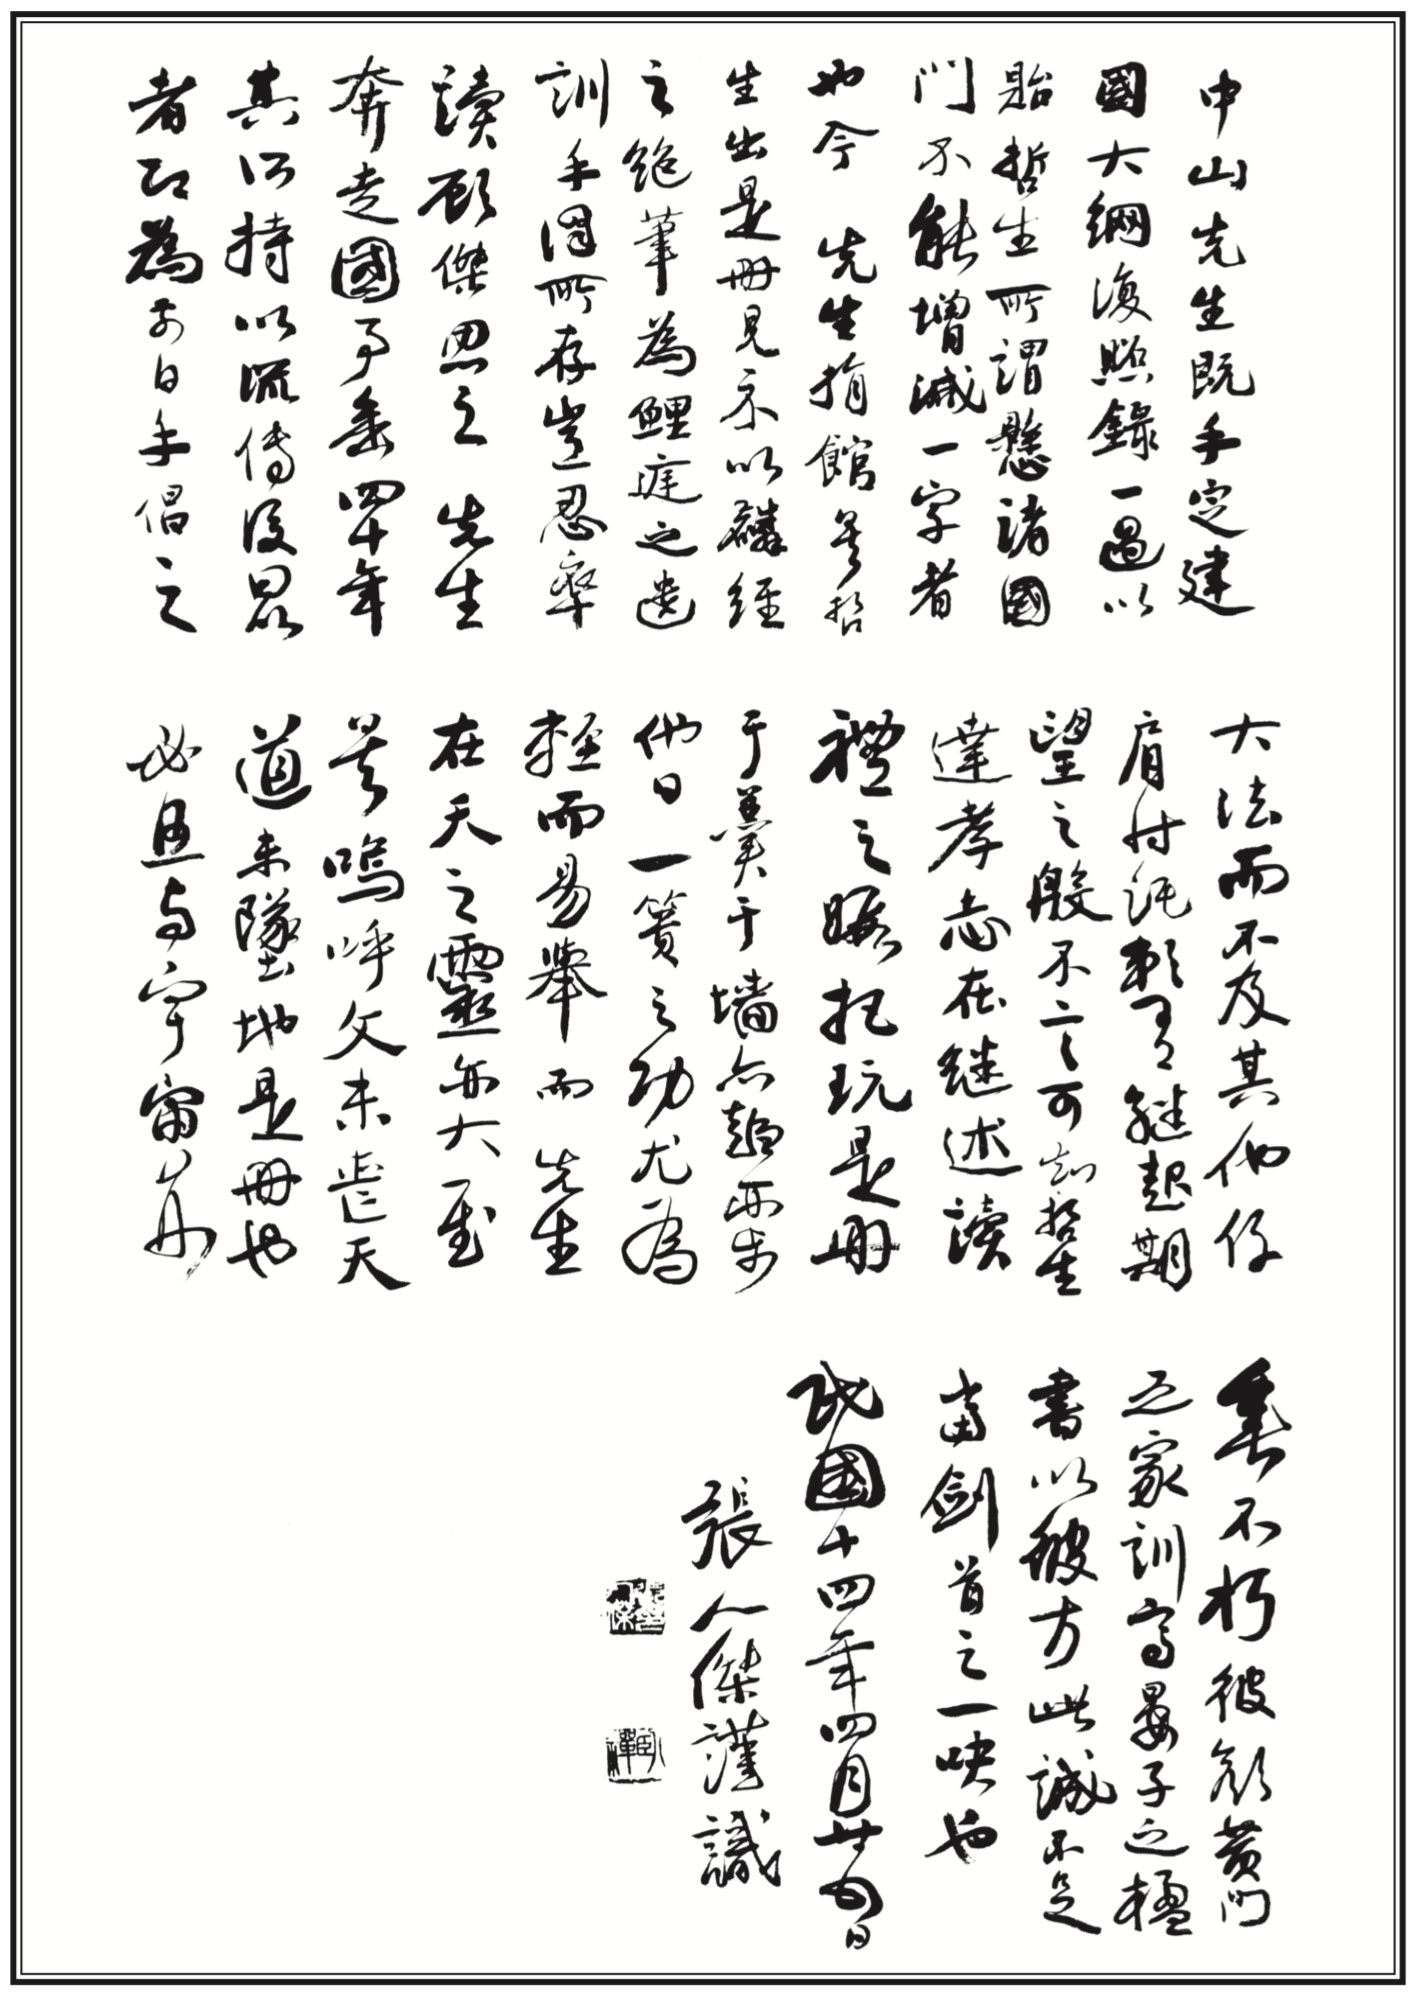 中山先生既手定建
國大綱復照錄一過以
貽哲生所謂懸諸國
門不能增減一字者
也今 先生捐館矣哲
生出是冊見示以麟經
之絕筆為鯉庭之遺
訓手澤所存豈忍率
讀顧傑思之 先生
奔走國事垂四十年
其所持以流傳後昆
者即為前日手倡之
大法而不及其他仔
肩付託賴有繼起期
望之殷不言可知哲生
達孝志在繼述讀
禮之暇把玩是冊
于羹于墻亦趨亦步
他日一簣之功尤為
輕而易舉而 先生
在天之靈亦大慰
矣嗚呼文未喪天
道未墜地是冊也
必且與宇宙並
垂不朽彼顏黃門
之家訓寫晏子之楹
書以彼方此誠不足
當劍首之一吷也
民國十四年四月廿日
張人傑謹識
臥禪